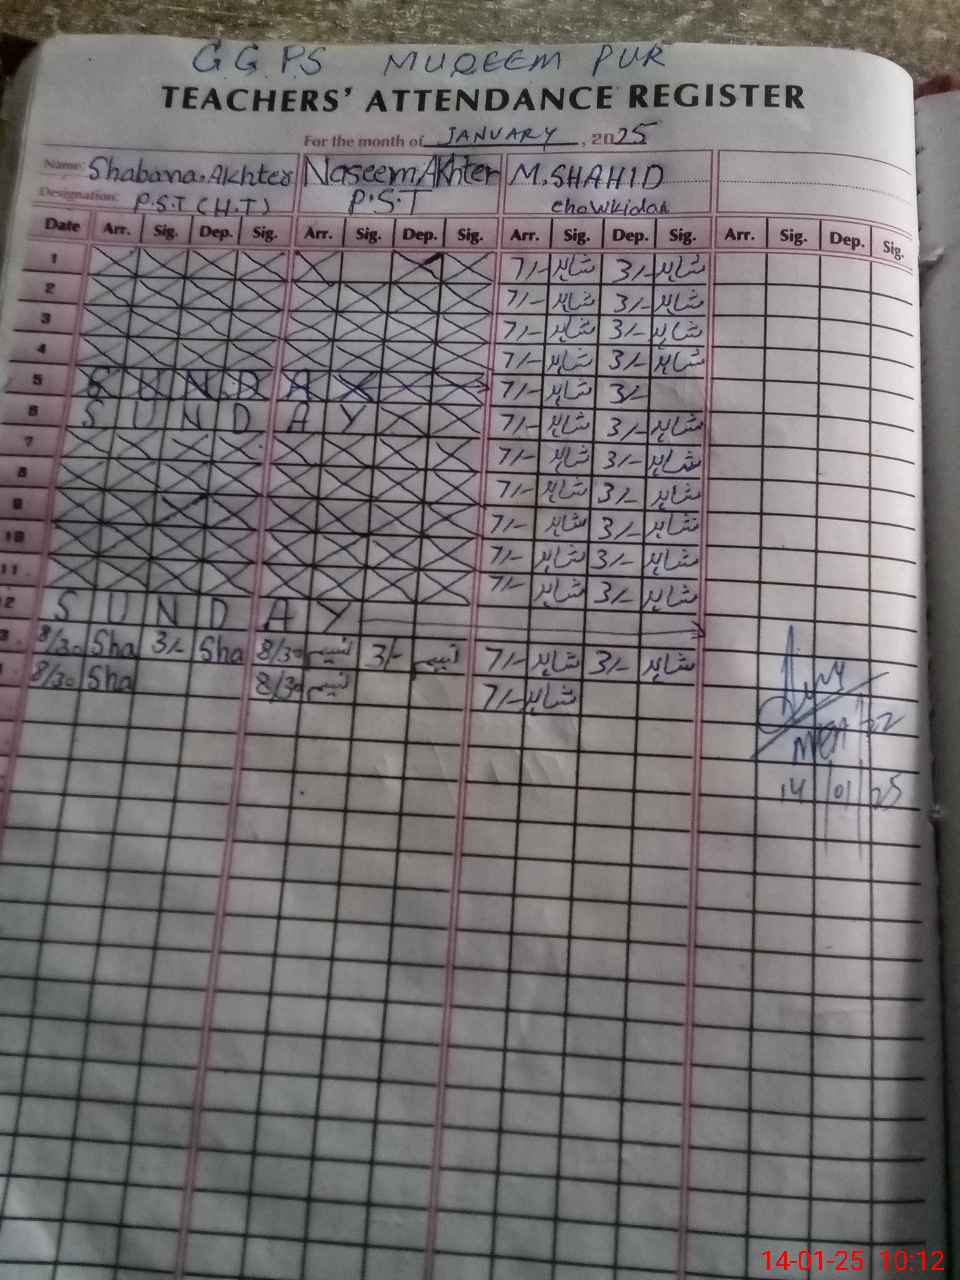 G.G.P.S MUQEEM PUR
TEACHERS' ATTENDANCE REGISTER
For the month of JANUARY, 2025
Name: Shabana.Akhter Naseem.Akhter M.SHAHID
Designation: P.S.T (H.T) P.S.T Chowkidar
Date Arr. Sig. Dep. Sig. Arr. Sig. Dep. Sig. Arr. Sig. Dep. Sig. Arr. Sig. Dep. Sig.
1 7/- شاہد 3/- شاہد
2 7/- شاہد 3/- شاہد
3 7/- شاہد 3/- شاہد
4 7/- شاہد 3/- شاہد
5 SUNDAY 7/- شاہد 3/-
6 SUNDAY 7/- شاہد 3/- شاہد
7 7/- شاہد 3/- شاہد
8 7/- شاہد 3/- شاہد
9 7/- شاہد 3/- شاہد
10 7/- شاہد 3/- شاہد
11 7/- شاہد 3/- شاہد
2 SUNDAY
3 8/30 Sha 3/- Sha 8/30 نسیم 3/- نسیم 7/- شاہد 3/- شاہد
8/30 Sha 8/30 نسیم 7/- شاہد
MEA 22
14/01/25
14-01-25 10:12